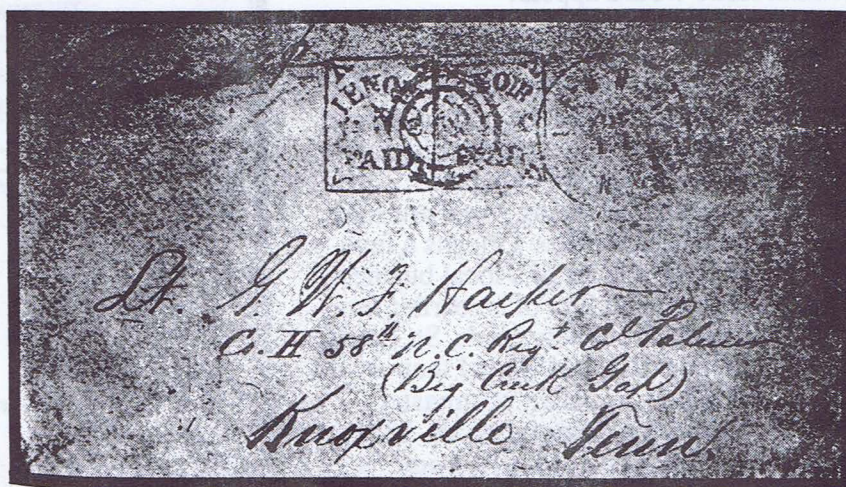 LENOIR LENOIR
N C
PAID PAID
Lt. G. W. F. Harper
Co. H 58th N.C. Regt Col Palmer
(Big Creek Gap)
Knoxville Tenn.